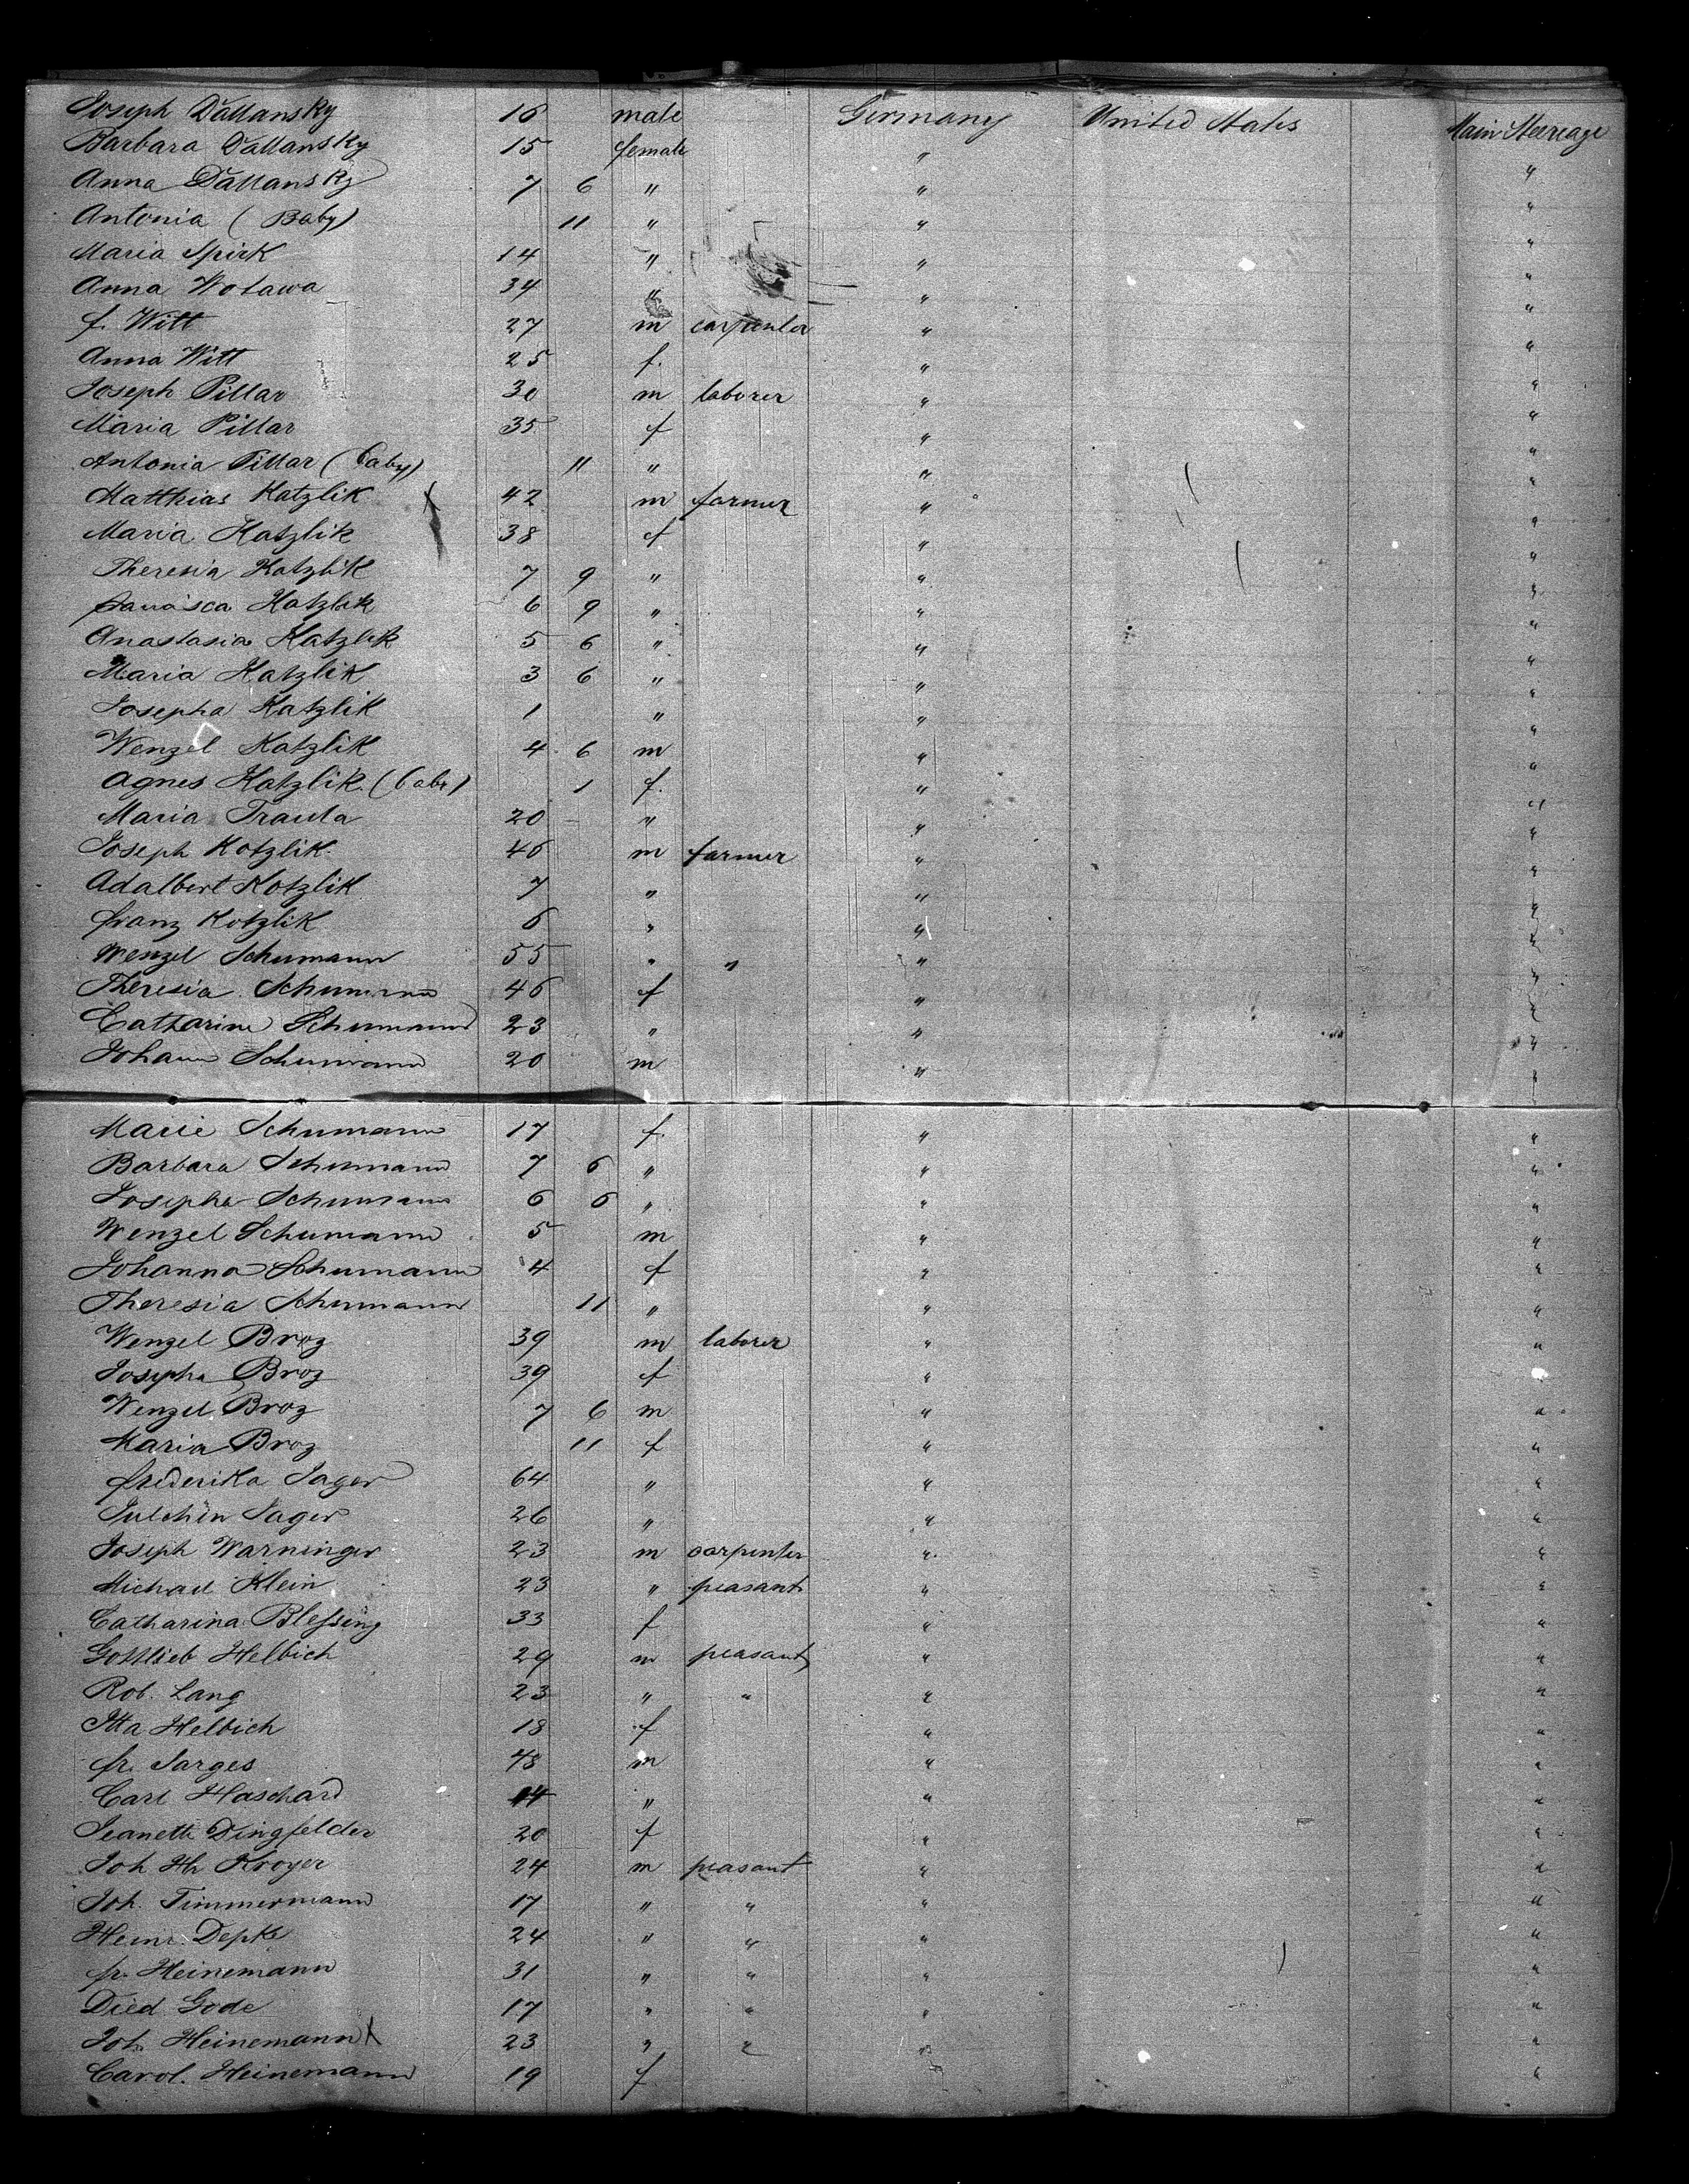 Joseph Dallansky 16 male Germany United States Main Steerage
Barbara Dallansky 15 female " "
Anna Dallansky 7 6 " " "
Antonia (Baby) 11 " " "
Maria Spirk 14 " " "
Anna Wotawa 34 " " "
f. Witt 27 m carpenter " "
Anna Witt 25 f. " "
Joseph Pillar 30 m laborer " "
Maria Pillar 35 f " "
Antonia Pillar (baby) 11 " " "
Matthias Katzlik 42 m farmer " "
Maria Katzlik 38 f " "
Theresia Katzlik 7 9 " " "
Katzlik 6 9 " " "
Anastasia Katzlik 5 6 " " "
Maria Katzlik 3 6 " " "
Josepha Katzlik 1 " " "
Wenzel Katzlik 4 6 m " "
Agnes Katzlik (baby) 1 f. " "
Maria 20 " " "
Joseph Kotzlik 46 m farmer " "
Adalbert Kotzlik 7 " " "
franz Kotzlik 6 " " "
Wenzel Schumann 55 " " " "
Theresia Schumann 46 f " "
Catharine Schumann 23 " " "
Johann Schumann 20 m " "
Marie Schumann 17 f. " "
Barbara Schumann 7 6 " " "
Josepha Schumann 6 6 " " "
Wenzel Schumann 5 m " "
Johanna Schumann 4 f " "
Theresia Schumann 11 " " "
Wenzel Broz 39 m laborer " "
Josepha Broz 39 f " "
Wenzel Broz 7 6 m " "
Maria Broz 11 f " "
frederika Sager 64 " " "
Julchen Sager 26 " " "
Joseph Warninger 23 m carpenter " "
Michael Klein 23 " peasant " "
Catharina Blessing 33 f " "
Gottlieb Helbich 29 m peasant " "
Rob. Lang 23 " " " "
Itta Helbich 18 f " "
fr. Sarges 48 m " "
Carl Haschard 14 " " "
Jeanette Dingfelder 20 f " "
Joh Hh Kroyer 24 m peasant " "
Joh. Timmermann 17 " " " "
Heinr. Depke 24 " " " "
fr. Heinemann 31 " " " "
Died Gode 17 " " " "
Joh. Heinemann 23 " " " "
Carol. Heinemann 19 f " "